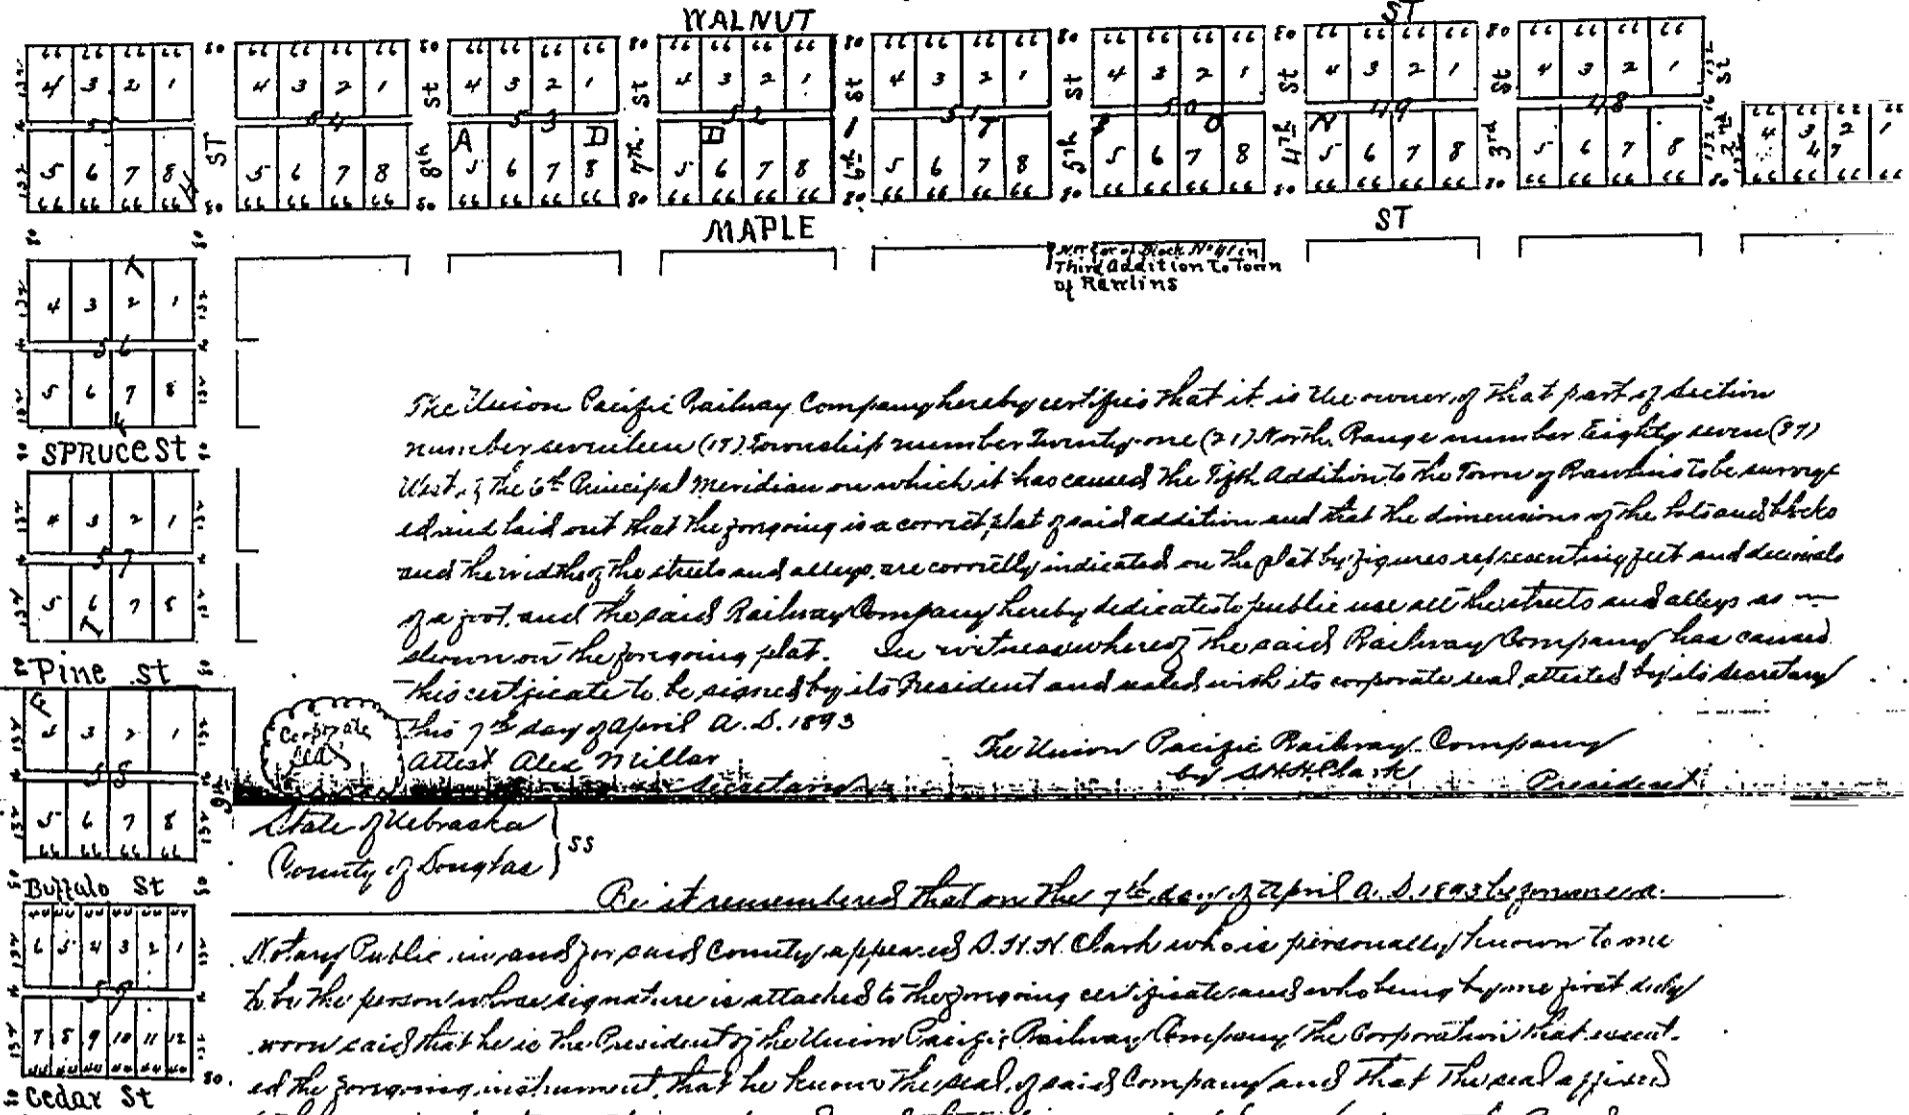 WALNUT ST
66 66 66 66 80 66 66 66 66 80 66 66 66 66 80 66 66 66 66 80 66 66 66 66 80 66 66 66 66 80 66 66 66 66 80 66 66 66 66
4 3 2 1 4 3 2 1 4 3 2 1 4 3 2 1 4 3 2 1 4 3 2 1 4 3 2 1 4 3 2 1
54 53 52 51 50 49 48
ST 8th St 7th St 6th St 5th St 4th St 3rd St 2nd St
A D
5 6 7 8 5 6 7 8 5 6 7 8 5 6 7 8 5 6 7 8 5 6 7 8 5 6 7 8 5 6 7 8
66 66 66 66 80 66 66 66 66 80 66 66 66 66 80 66 66 66 66 80 66 66 66 66 80 66 66 66 66 80 66 66 66 66 80 66 66 66 66 80
66 66 66 66
4 3 2 1
47
66 66 66 66
MAPLE ST
Cor of Block No 41 in
Third Addition To Town
of Rawlins
4 3 2 1
56
5 6 7 8
SPRUCE St
4 3 2 1
57
5 6 7 8
Pine St
3 2 1
5 6 7 8
66 66 66 66
9th
Buffalo St
44 44 44 44 44 44
6 5 4 3 2 1
7 8 9 10 11 12
44 44 44 44 44 44
Cedar St
The Union Pacific Railway Company hereby certifies that it is the owner of that part of Section
number seventeen (17) Township number Twenty-one (21) North, Range number Eighty seven (87)
West of the 6th Principal Meridian on which it has caused the Fifth Addition to the Town of Rawlins to be survey
ed and laid out that the foregoing is a correct plat of said addition and that the dimensions of the lots and blocks
and the width of the streets and alleys are correctly indicated on the plat by figures representing feet and decimals
of a foot, and the said Railway Company hereby dedicates to public use all the streets and alleys as
shown on the foregoing plat. In witness whereof the said Railway Company has caused
this certificate to be signed by its President and sealed with its corporate seal, attested by its secretary
this 7th day of April A.D. 1893
Corporate Seal
Attest Alex Millar
Secretary
The Union Pacific Railway Company
by S.H.H. Clark
President
State of Nebraska
County of Douglas } SS
Be it remembered that on the 7th day of April A.D. 1893 before me a
Notary Public in and for said County appeared S.H.H. Clark who is personally known to me
to be the person whose signature is attached to the foregoing certificate and who being by me first duly
sworn said that he is the President of the Union Pacific Railway Company the Corporation that execut-
ed the foregoing instrument, that he knows the seal of said Company and that the seal affixed